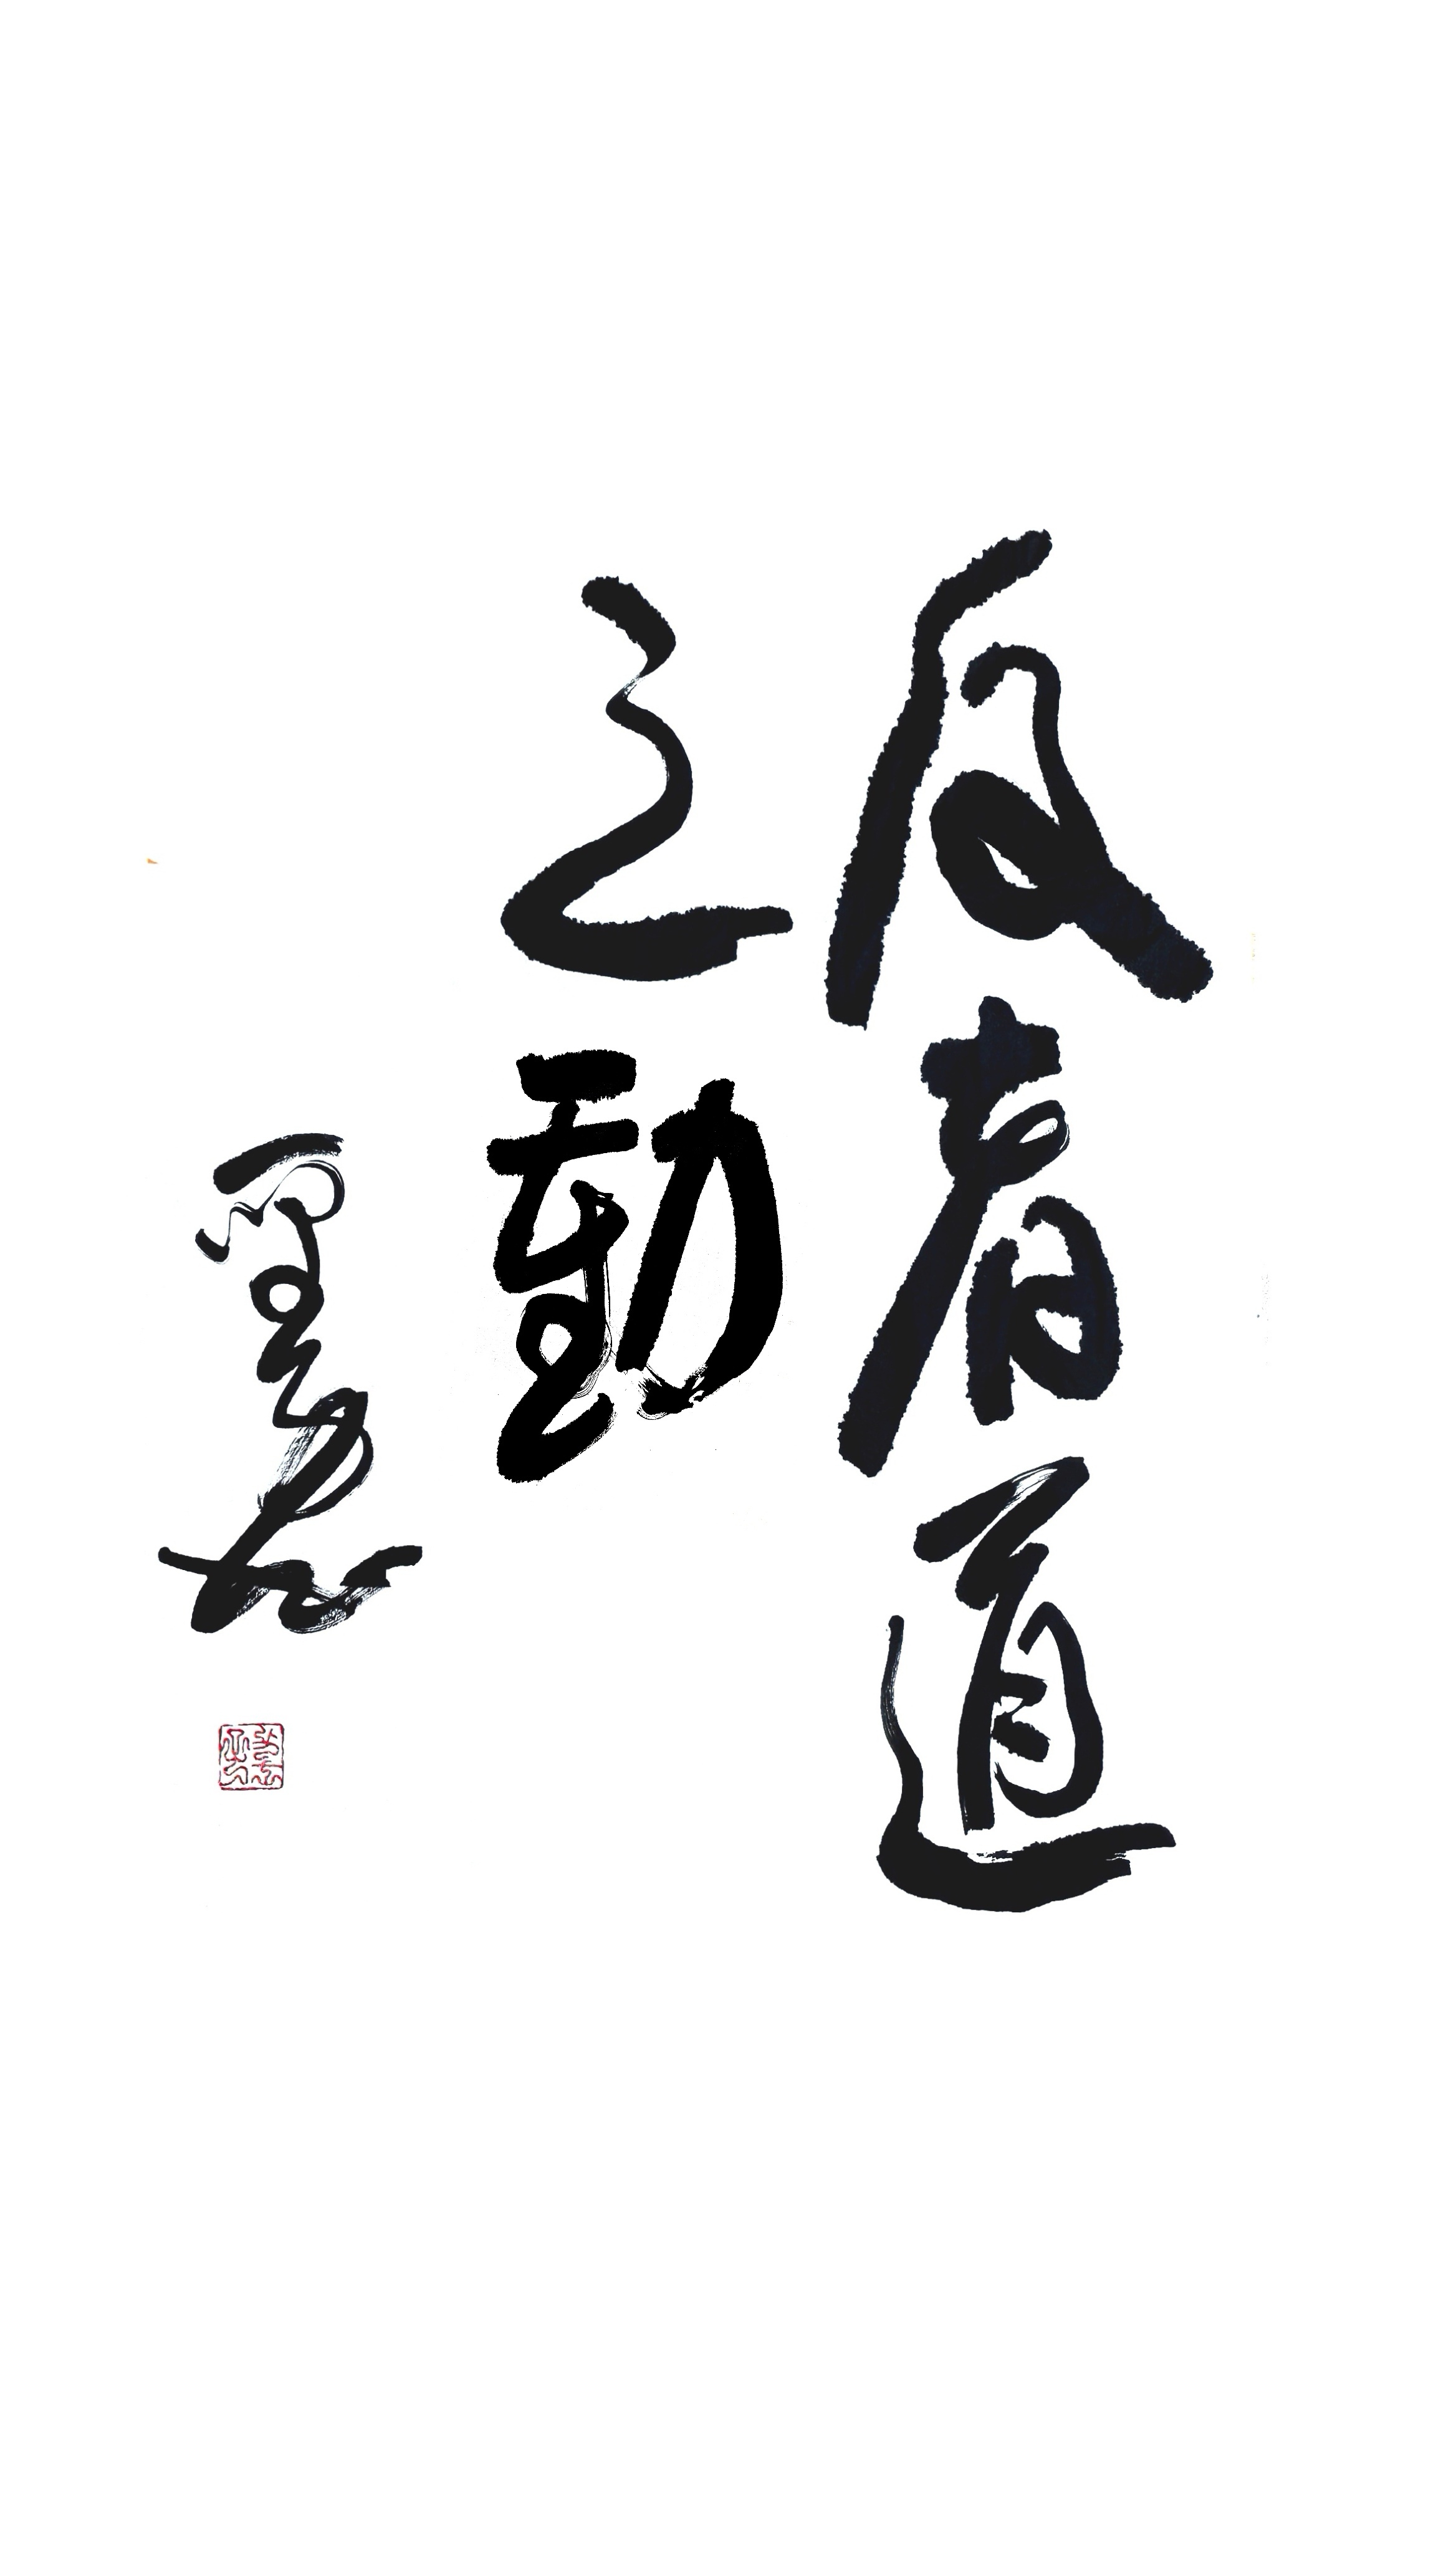 反者道
之動